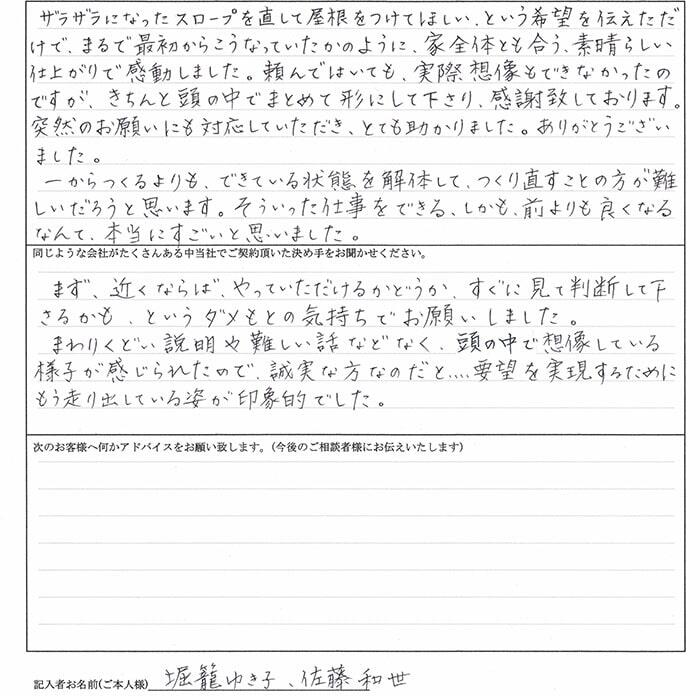 ザラザラになったスロープを直して屋根をつけてほしい、という希望を伝えただ
けで、まるで最初からこうなっていたかのように、家全体とも合う、素晴らしい
仕上がりで感動しました。頼んではいても、実際想像もできなかったの
ですが、きちんと頭の中でまとめて形にして下さり、感謝致しております。
突然のお願いにも対応していただき、とても助かりました。ありがとうござい
ました。
一からつくるよりも、できている状態を解体して、つくり直すことの方が難
しいだろうと思います。そういった仕事をできる、しかも、前よりも良くなる
なんて、本当にすごいと思いました。
同じような会社がたくさんある中当社でご契約頂いた決め手をお聞かせください。
まず、近くならば、やっていただけるかどうか、すぐに見て判断して下
さるかも、というダメもとの気持ちでお願いしました。
まわりくどい説明や難しい話などなく、頭の中で想像している
様子が感じられたので、誠実な方なのだと....要望を実現するために
もう走り出している姿が印象的でした。
次のお客様へ何かアドバイスをお願い致します。(今後のご相談者様にお伝えいたします)
記入者お名前(ご本人様) 堀籠ゆき子、佐藤和世